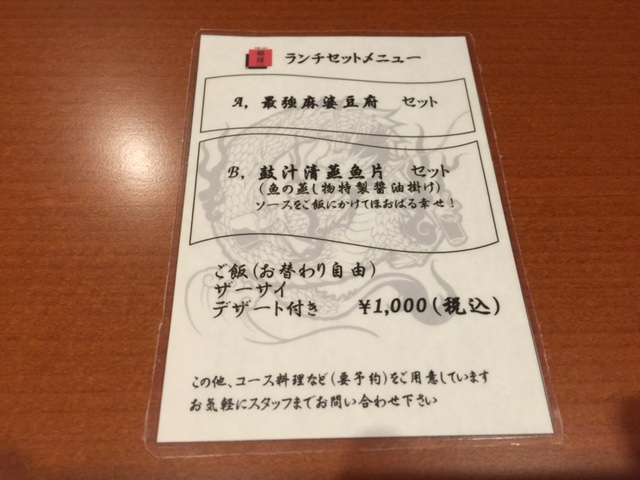 ランチセットメニュー
A, 最強麻婆豆府 セット
B, 鼓汁清蒸魚片 セット
(魚の蒸し物特製醤油掛け)
ソースをご飯にかけてほおばる幸せ!
ご飯(お替わり自由)
ザーサイ
デザート付き ¥1,000(税込)
この他、コース料理など(要予約)をご用意しています
お気軽にスタッフまでお問い合わせ下さい